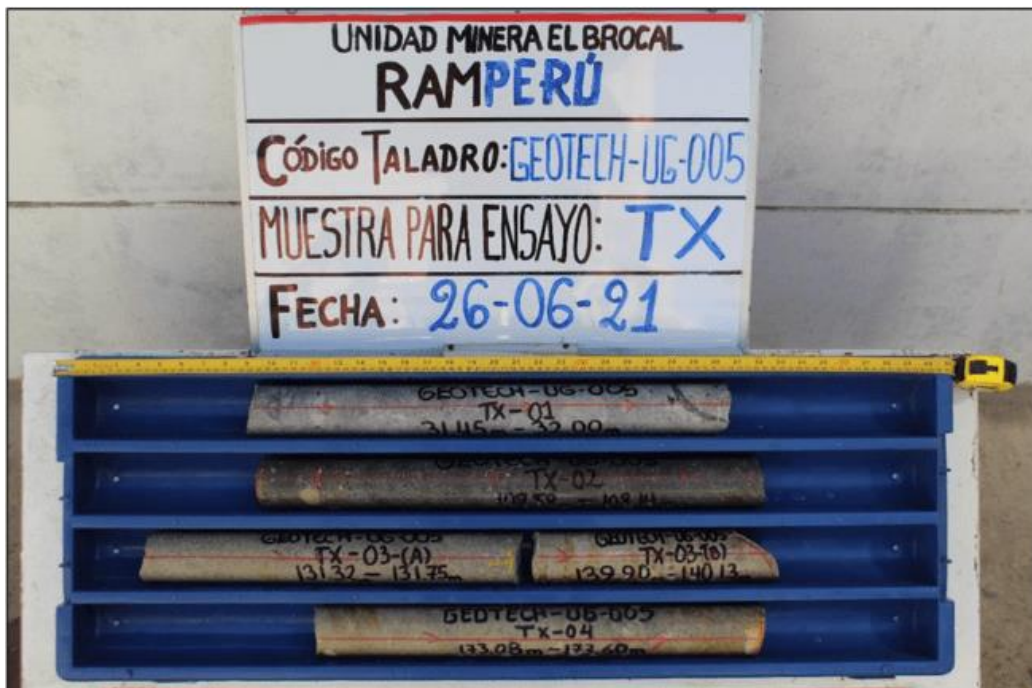 UNIDAD MINERA EL BROCAL
RAMPERÚ
CÓDIGO TALADRO: GEOTECH-UG-005
MUESTRA PARA ENSAYO: TX
FECHA: 26-06-21
GEOTECH-UG-005
TX-01
31.45m - 32.00m
GEOTECH-UG-005
TX-02
GEOTECH-UG-005
TX-03-(A)
131.32 - 131.75m
GEOTECH-UG-005
TX-03-(B)
139.90m - 140.13m
GEOTECH-UG-005
TX-04